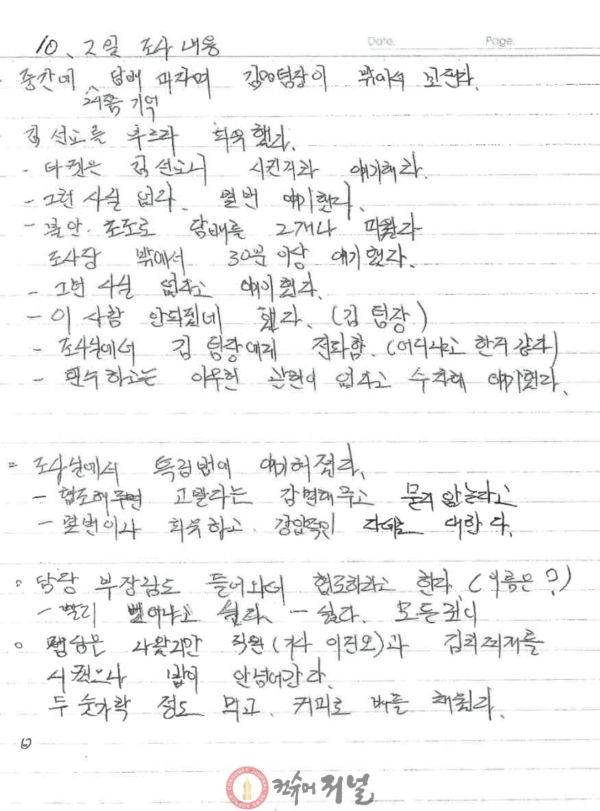 10、2일 조사 내용
Date. Page.
- 중간에 담배 피자며 김 팀장이 밖에서 꼬진다.
2대쯤 기억
- 김 선고를 후르라 회유했다.
- 타켓은 김 선고니 시킨거라 얘기해라.
- 그런 사실 없다. 몇번 얘기했다.
- 불안·초조로 담배를 2개나 피웠다
조사장 밖에서 30분 이상 얘기했다.
- 그런 사실 없다고 얘기했다.
- 이 사람 안되겠네 했다. (김 팀장)
- 조사실에서 김 팀장에게 전화함. (어디냐고 한거 같다)
- 하고는 아무런 관련이 없다고 수차례 얘기했다.
= 조사실에서 특검법에 얘기허졌다.
- 협조해주면 고발과는 감면해주고 묻지 않는다고
- 몇번이나 회유하고 강압적인 대한다.
○ 담당 부장님도 들어와서 협조하라고 한다. (이름은?)
- 빨리 벗어나고 싶다. - 싶다. 모든것이
○ 나왔지만 직원( 이진오)과 김치찌개를
시켰으나 밥이 안넘어간다.
두 숟가락 정도 먹고. 커피로 배를 채웠다.
컨슈머저널